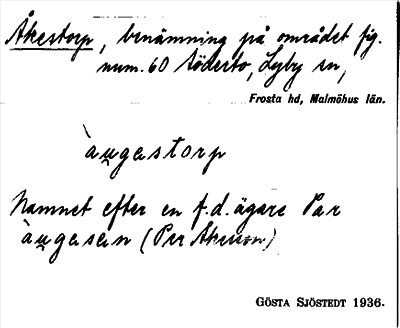 Åkestorp, benämning på området fig.
num. 60 Söderto, Lyby sn,
Frosta hd, Malmöhus län.
àu̯gastorp
Namnet efter en f.d. ägare Par
àu̯gasan (Per Åkesson)
GÖSTA SJÖSTEDT 1936.